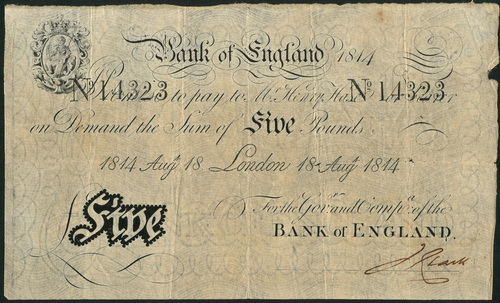 Bank of England 1814
Nº 14323 to pay to Mr. Henry Hase Nº 14323
on Demand the Sum of Five Pounds
1814 Augt 18 London 18 Augt 1814
Five For the Govr. and Compa. of the
BANK of ENGLAND.